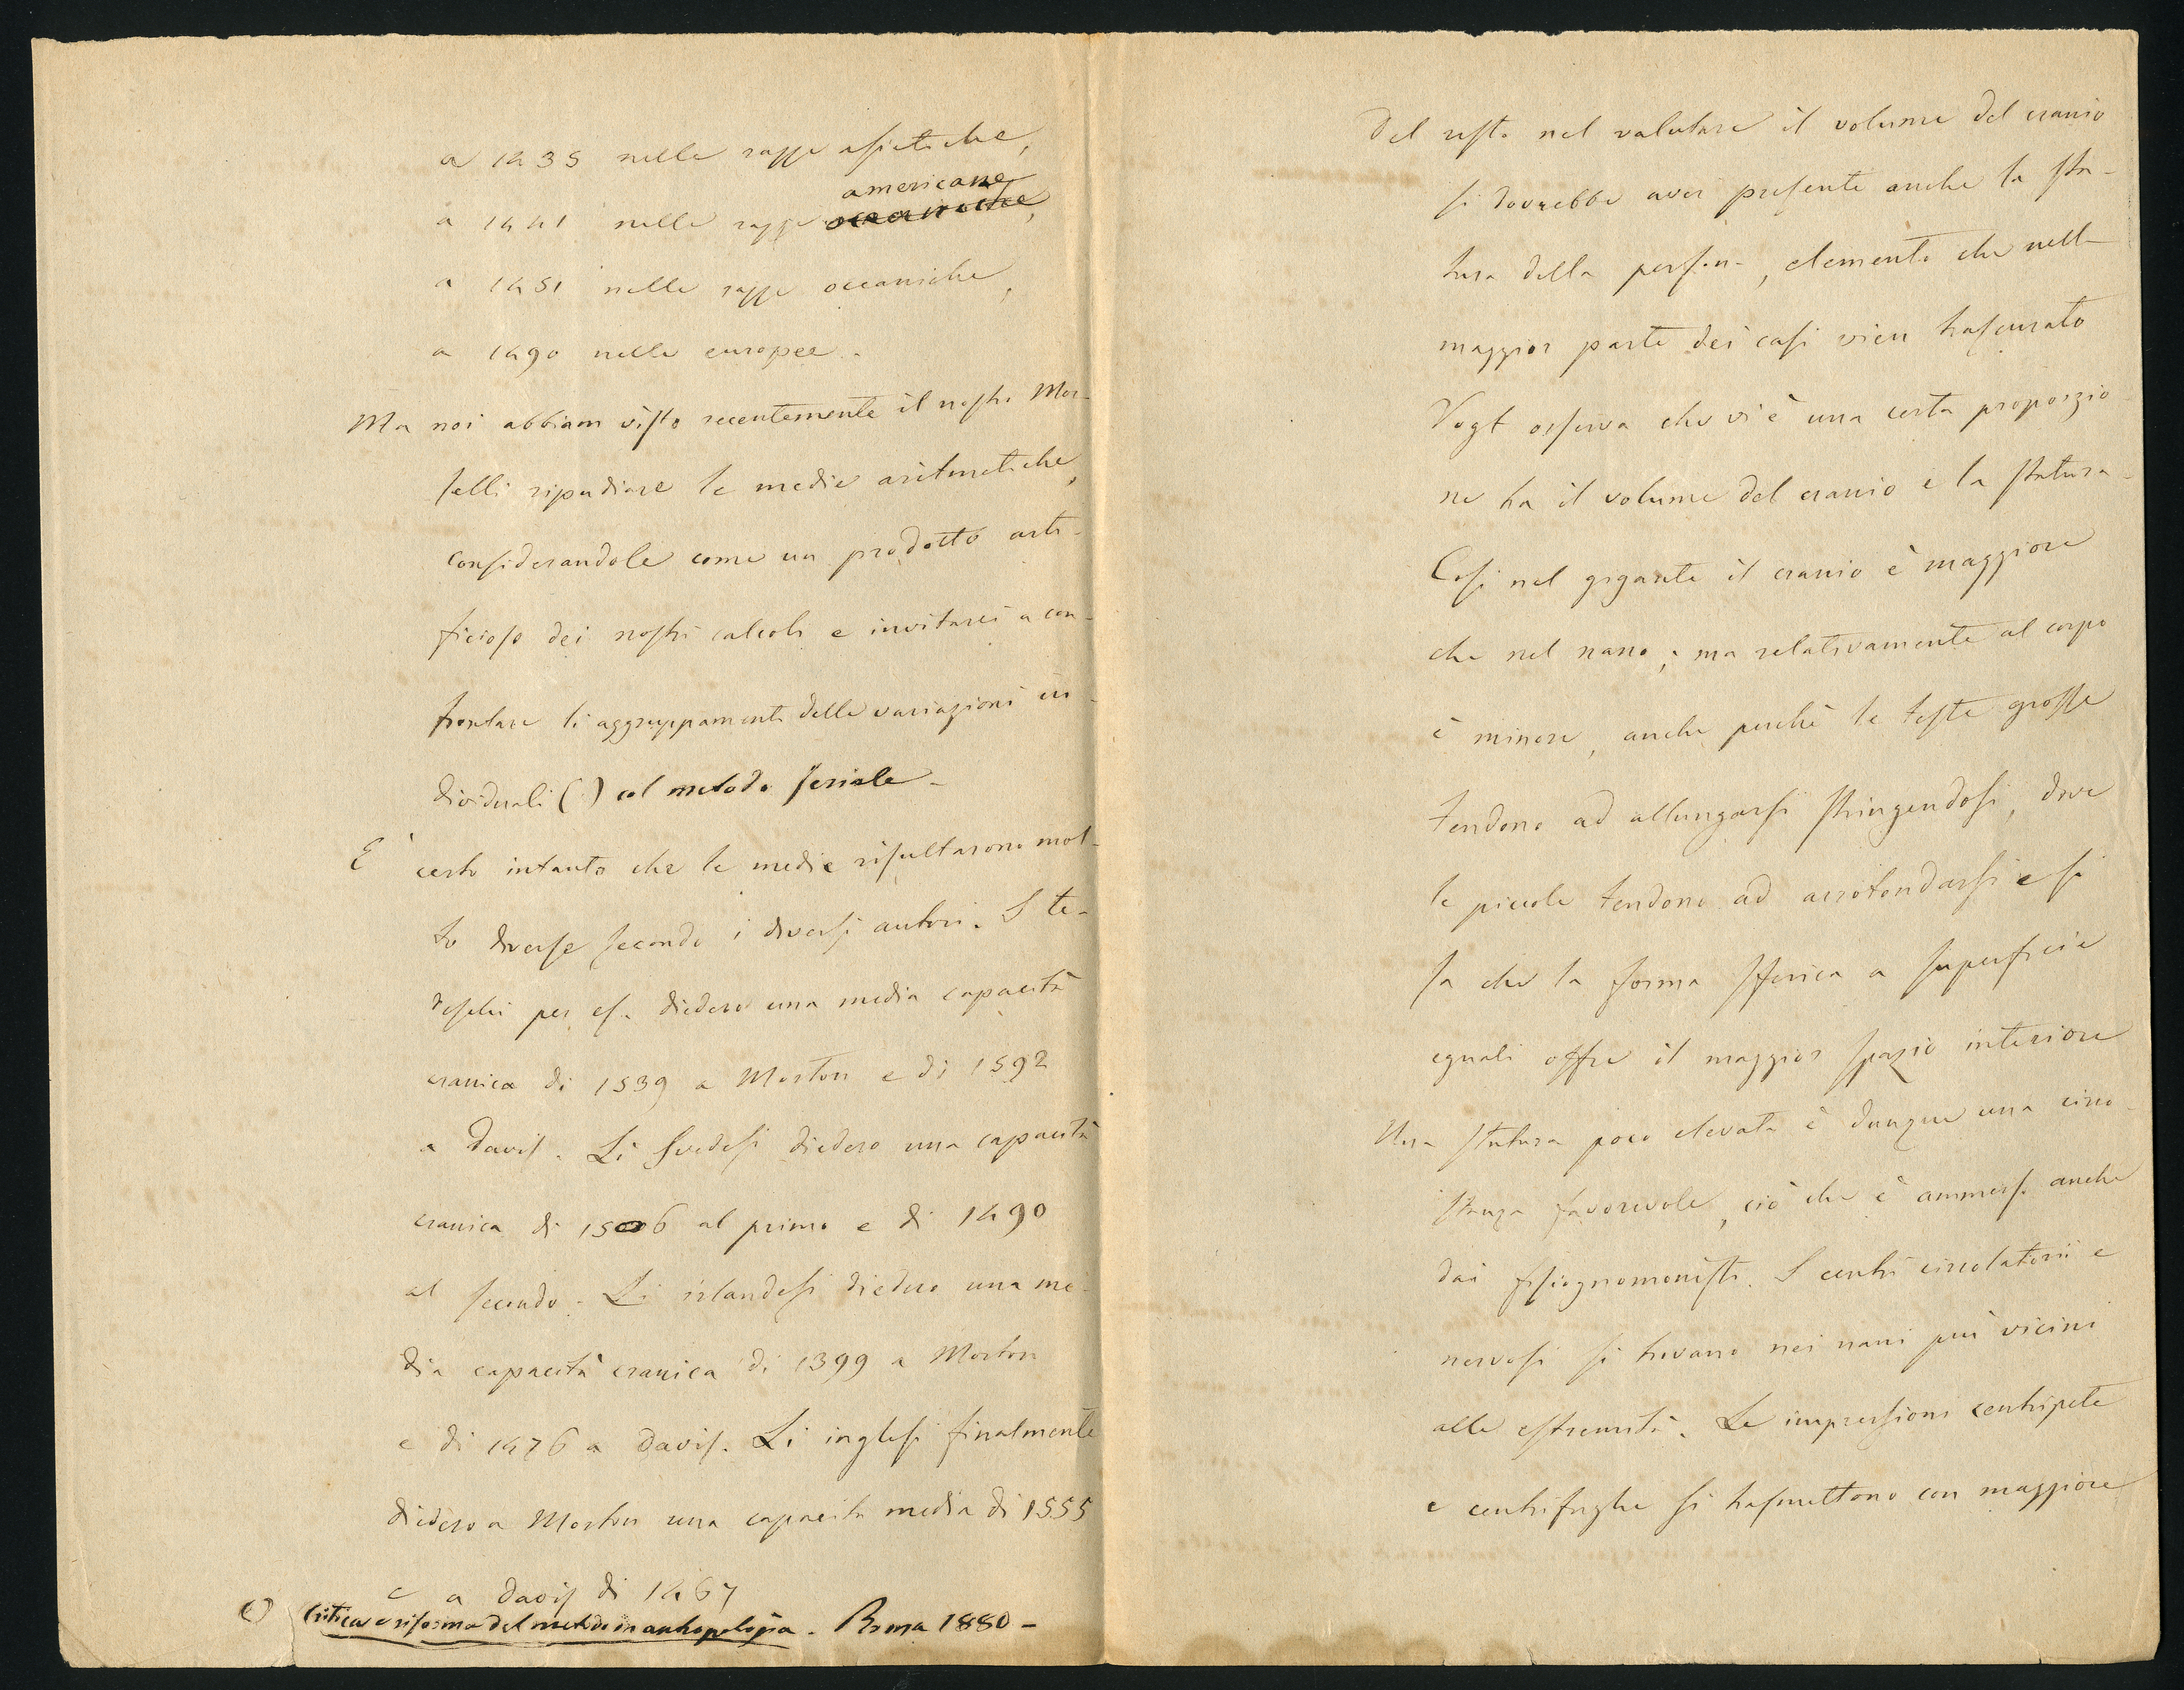 a 1435 nelle razze asiatiche,
americane
a 1441 nelle razze oceaniche,
a 1451 nelle razze oceaniche,
a 1490 nelle europee.
Ma noi abbiam visto recentemente il nostro Mor-
selli ripudiare le medie aritmetiche,
considerandole come un prodotto arti-
ficioso dei nostri calcoli e invitarci a con-
frontare li aggruppamenti delle variazioni in-
dividuali (1) col metodo seriale -
E' certo intanto che le medie risultarono mol-
to diverse secondo i diversi autori. I te-
deschi per es. diedero una media capacità
cranica di 1539 a Morton e di 1592
a Davis. Li Svedesi diedero una capacità
cranica di 1506 al primo e di 1490
al secondo - Li irlandesi diedero una me-
dia capacità cranica di 1399 a Morton
e di 1476 a Davis. Li inglesi finalmente
diedero a Morton una capacità media di 1555
e a Davis di 1467
(1) Critica e riforma del metodo in antropologia. Roma 1880 -
Del resto nel valutare il volume del cranio
si dovrebbe aver presente anche la sta-
tura della persona, elemento che nella
maggior parte dei casi vien trascurato
Vogt osserva che vi è una certa proporzio-
ne tra il volume del cranio e la statura -
Così nel gigante il cranio è maggiore
che nel nano; ma relativamente al corpo
è minore, anche perchè le teste grosse
tendono ad allungarsi stringendosi, dove
le piccole tendono ad arrotondarsi e si
sa che la forma sferica a superficie
eguali offre il maggior spazio interiore
Una statura poco elevata è dunque una circo-
stanza favorevole, ciò che è ammesso anche
dai fisiognomonisti. I centri circolatorii e
nervosi si trovano nei nani più vicini
alle estremità. Le impressioni centripete
e centrifughe si trasmettono con maggiore